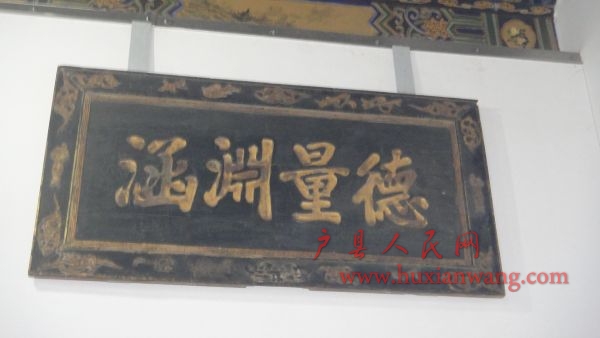 德量淵涵
户县人民网
www.huxianwang.com